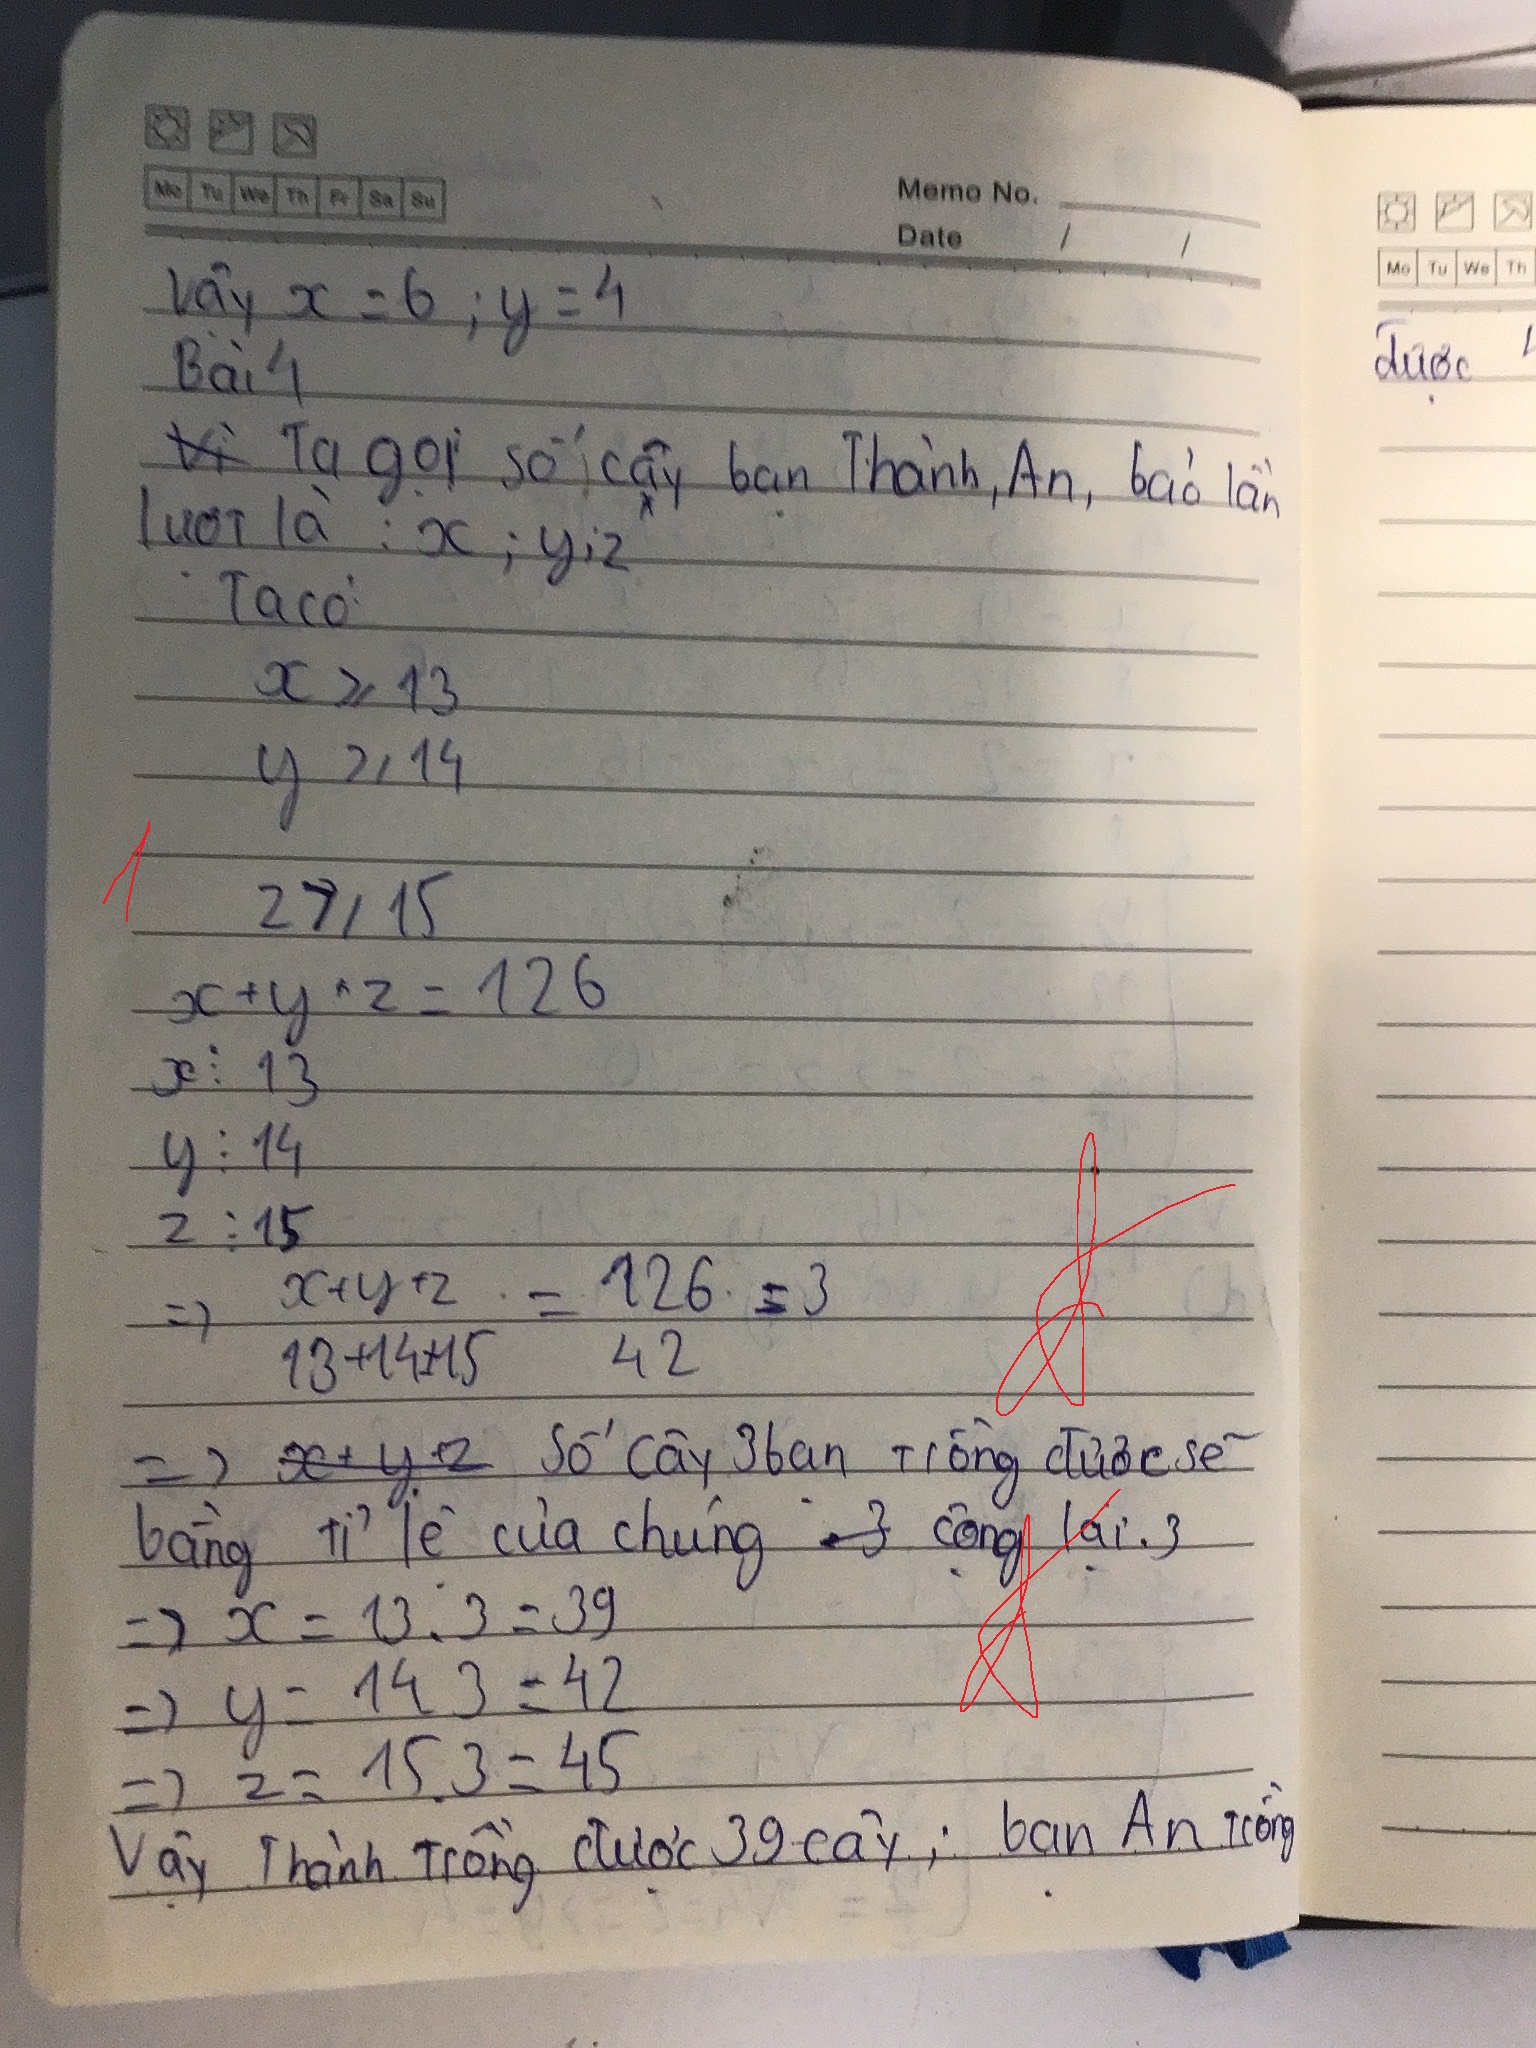 Mo Tu We Th Fr Sa Su
Memo No.
Date / /
Vậy x = 6 ; y = 4
Bài 4
Vì Ta gọi số cây bạn Thành, An, bảo lần
lượt là : x ; y ; z
Ta có
x ⩾ 13
y ⩾ 14
1
z ⩾ 15
x + y + z = 126
x ⋮ 13
y ⋮ 14
z ⋮ 15
=> x+y+z / 13+14+15 = 126 / 42 = 3
=> x+y+z Số cây 3 bạn trồng được sẽ
bằng tỉ lệ của chúng 3 cộng lại . 3
=> x = 13 . 3 = 39
=> y = 14 . 3 = 42
=> z = 15 . 3 = 45
Vậy Thành trồng được 39 cây ; bạn An trồng
Mo Tu We Th
được 4